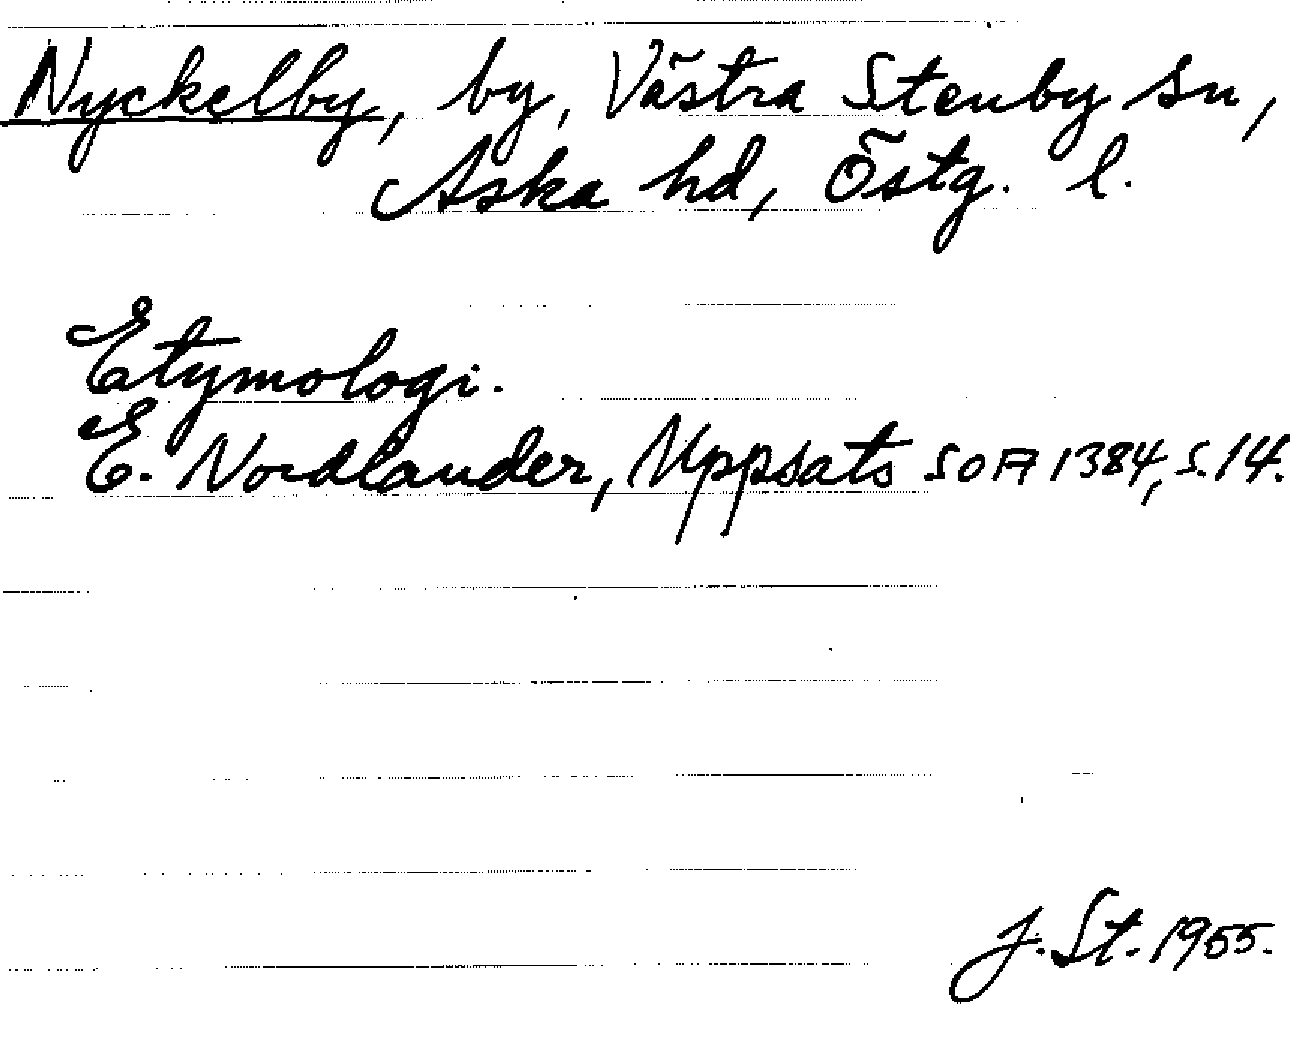 Nyckelby, by, Västra Stenby sn,
Aska hd, Östg. l.
Etymologi.
E. Nordlander, Uppsats SOA 1384, s. 14.
J. St. 1955.